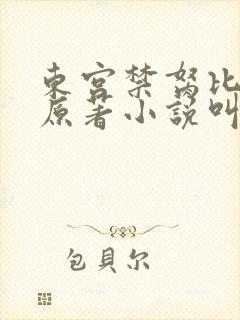 東宮禁努比
原著小說叫
包貝尔